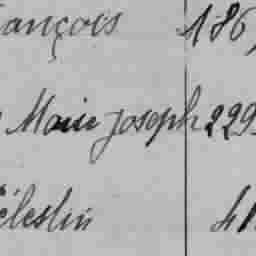 ançois 186
Marie Joseph 229
élestin 41